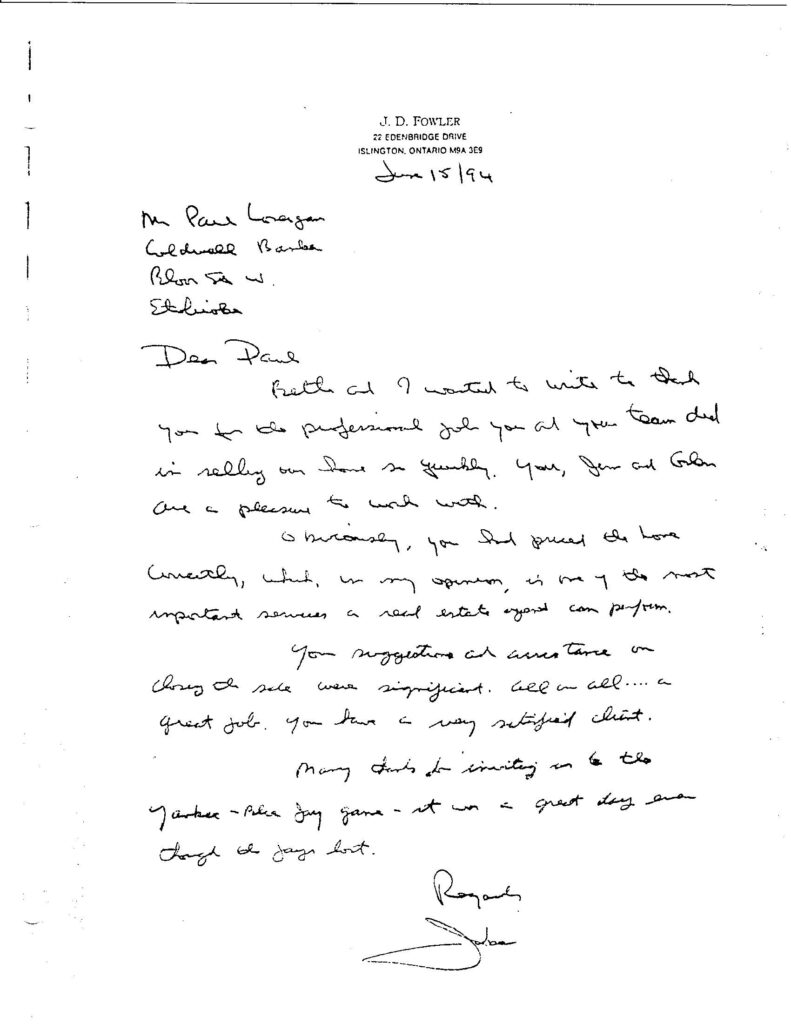 J. D. FOWLER
22 EDENBRIDGE DRIVE
ISLINGTON, ONTARIO M9A 3E9
June 15/94
Mr Paul Lonergan
Coldwell Banker
Bloor St W.
Etobicoke
Dear Paul
and I wanted to write to thank
you for the professional job you and your team did
in selling our home so quickly. You, and
are a pleasure to work with.
Obviously, you had priced the home
correctly, which, in my opinion, is one of the most
important services a real estate agent can perform.
Your suggestions and assistance on
closing the sale were significant. All in all.... a
great job. You have a very satisfied client.
Many thanks for inviting us to the
Yankee - Blue Jay game - it was a great day even
though the Jays lost.
Regards